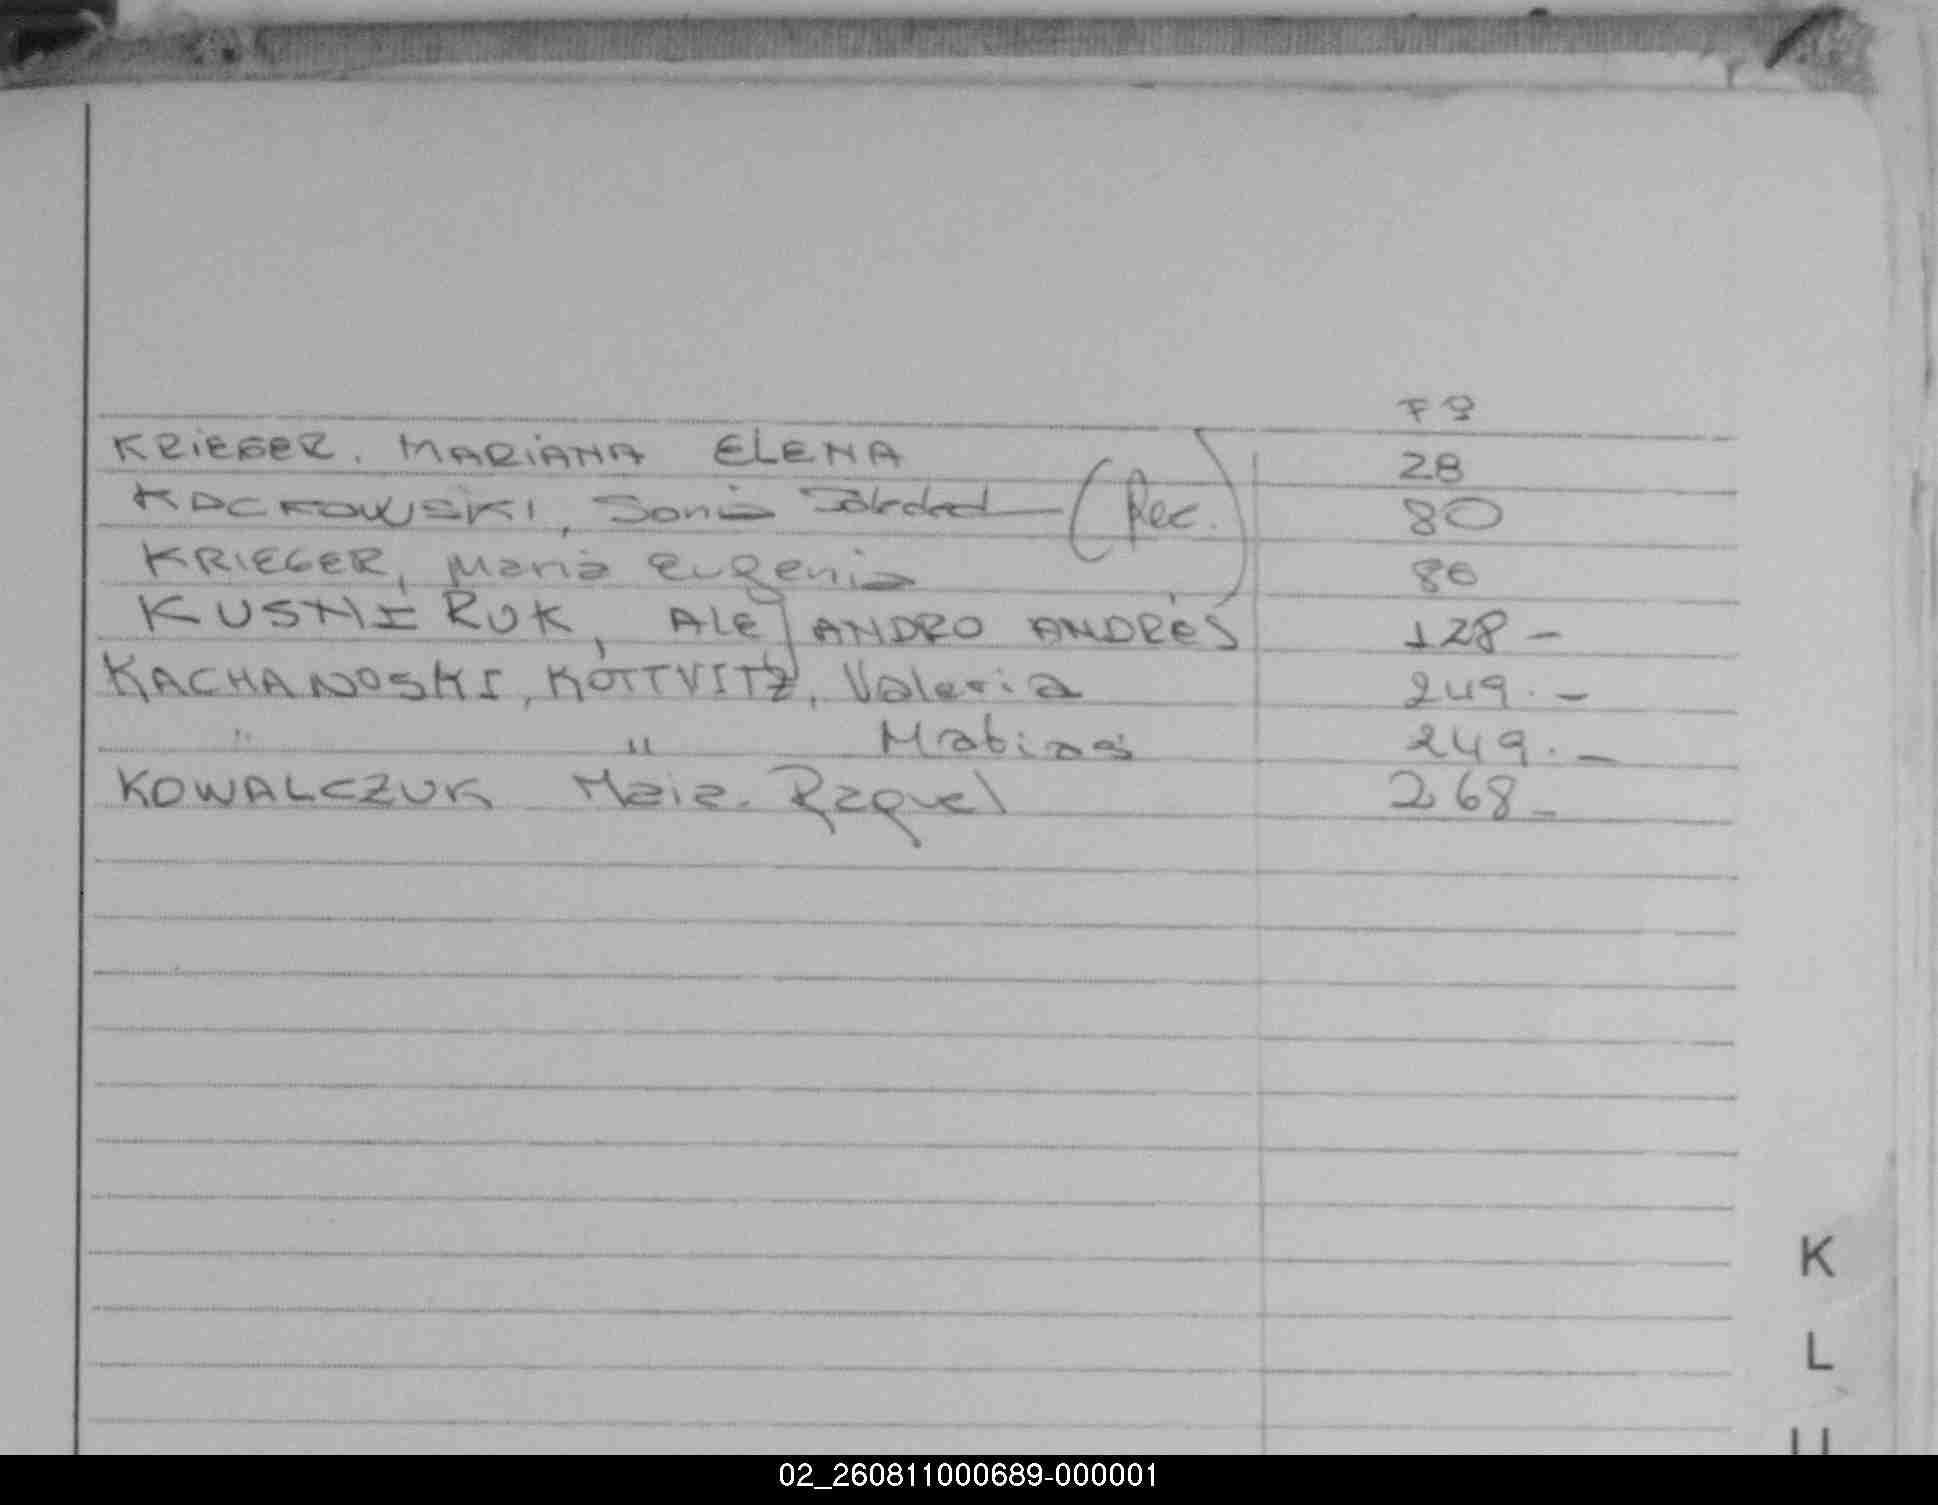 Fº
KRiEGER, MARiANA ELENA 28
KACKOWSKI, Sonia Soledad (Rec.) 80
KRIEGER, Maria Eugenia 80
KUSNIRUK, ALEJANDRO ANDRÉS 128 -
KACHANOSKI, KOTTVITZ, Valeria 249.-
" " Matias 249.-
KOWALCZUK Raquel 268-
K
L
02_260811000689-000001